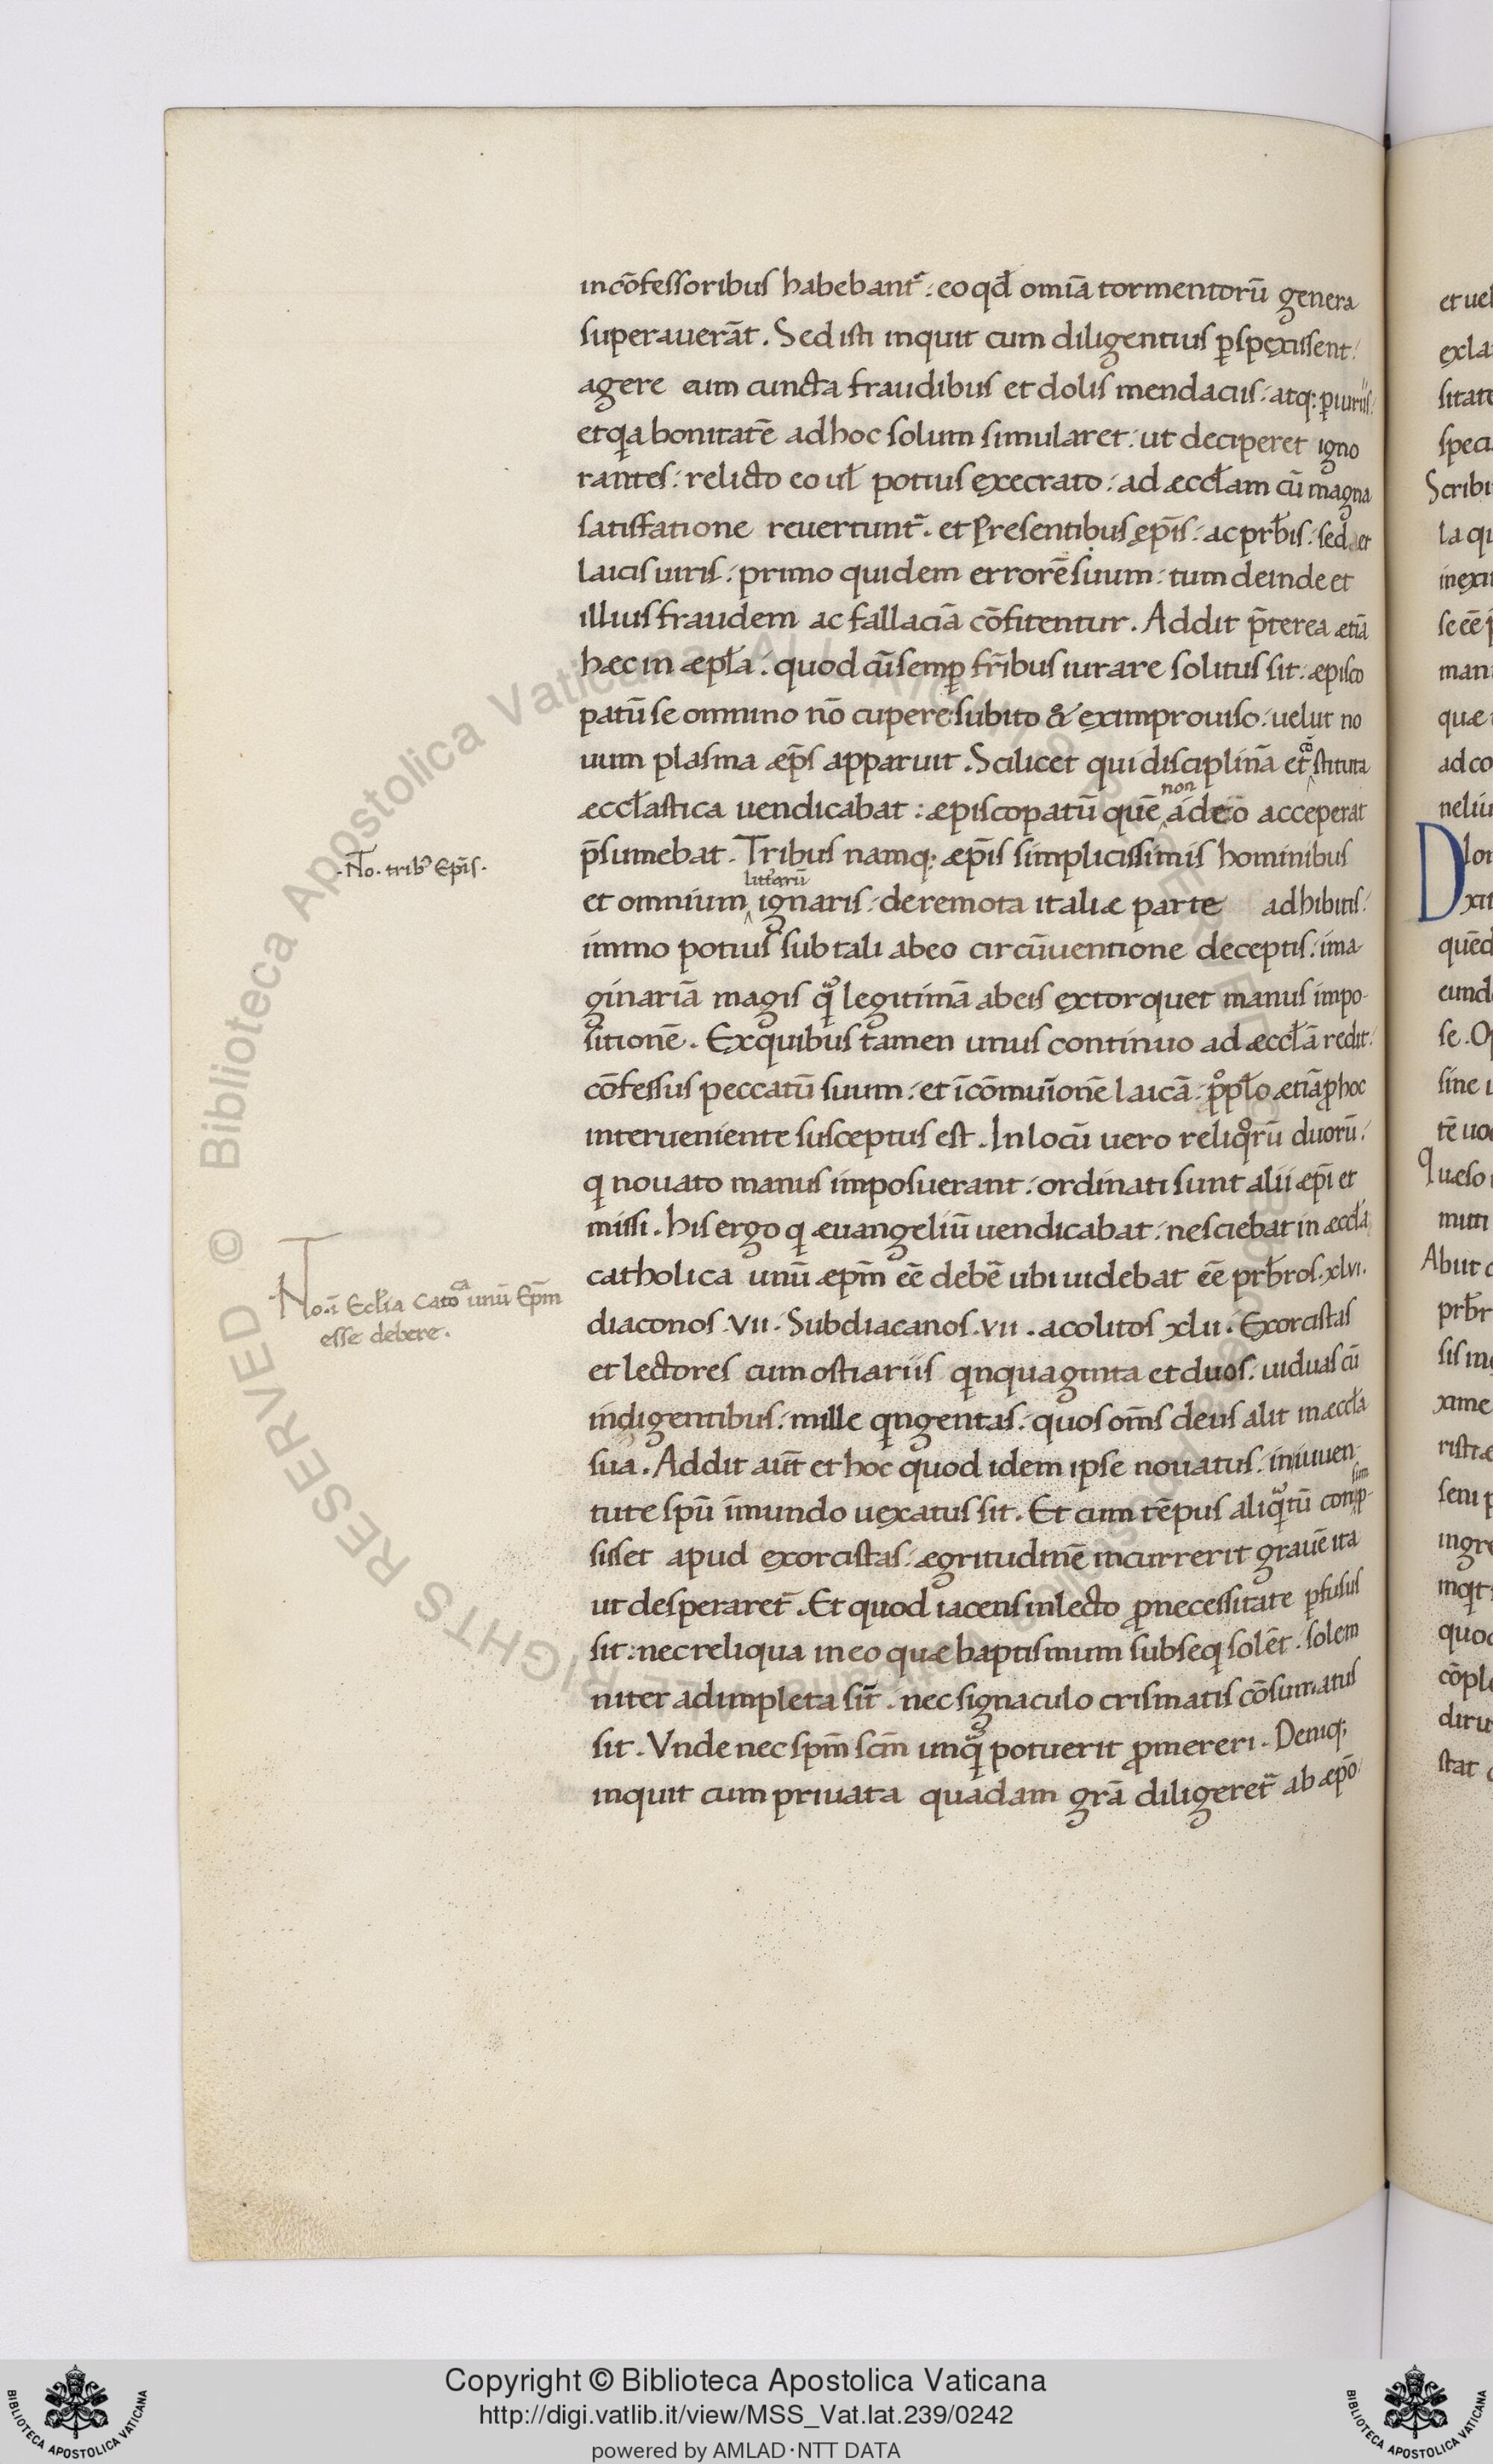 in cōfessoribus habebant᷑ : eo qđ omīa tormentorū genera
superauerāt . Sed isti inquit cum diligentius ꝑspexissent :
agere eum cuncta fraudibus et dolis mendaciis : atq; ꝑiuriis :
et qͣ bonitatē ad hoc solum simularet : ut deciperet igno
rantes : relicto eo ul̄ potius execrato : ad æccl̄am cū magna
satisfatione reuertunt᷑ . et Presentibus ep̄is : ac prb̄is : sed et
laicis uiris : primo quidem errorē suum : tum deinde et
illius fraudem ac fallaciā cōfitentur . Addit p̄terea ætiā
hæc in æpl̄a . quod cū semꝑ fr̄ibus iurare solitus sit : æpisco
patū se omnino nō cupere : subito & ex improuiso : uelut no
uum plasma æp̄s apparuit . Scilicet qui disciplinā et cōstituta
æccl̄astica uendicabat : æpiscopatū quē non a deo acceperat
p̄sumebat . Tribus namq; æp̄is simplicissimis hominibus
et omnium litterarū ignaris : de remota italiæ parte adhibitis :
immo potius sub tali ab eo circūuentione deceptis : ima-
ginariā magis qͣ̄ legitimā ab eis extorquet manus impo-
sitionē . Ex quibus tamen unus continuo ad æccl̄ā redit :
cōfessus peccatū suum : et ī cōmuīonē laicā : pͦpl̄o ætiā ꝓ hoc
interueniente susceptus est . In locū uero reliqͦrū duorū :
q nouato manus imposuerant : ordinati sunt alii æp̄i et
missi . his ergo q æuangeliū uendicabat : nesciebat in æccl̄a
catholica unū æp̄m eē debē ubi uidebat eē prb̄ros . xlvi .
diaconos . vii . Subdiacanos . vii . acolitos xlii . Exorcistas
et lectores cum ostiariis qnquaginta et duos : uiduas cū
indigentibus : mille qngentas : quos om̄s deus alit in æccl̄a
sua . Addit aūt et hoc quod idem ipse nouatus : in iuuen-
tute spū īmundo uexatus sit . Et cum tēpus aliqͣ̄tū consump-
sisset apud exorcistas : ægritudinē incurrerit grauē ita
ut desperaret᷑ . Et quod iacens in lecto ꝓ necessitate ꝑfusus
sit : nec reliqua in eo quæ baptismum subseq solēt . solem
niter adimpleta sīt . nec signaculo crismatis cōsumatus
sit . Vnde nec spm̄ scm̄ unqͣ̄ potuerit ꝓmereri . Deniq;
inquit cum priuata quadam grā diligeret᷑ ab æpō
. No . trib9 Ep̄is .
. No . ī Eccl̄ia Catoca unū Ep̄m
esse debere .
et uel
exla
sitate
speci
Scribi
la qu
in exi
se eē p
man
quæ
ad co
neliu
D lo
xit
quēd
eund
se . Q
sine u
tē uo
Quæso
mitti
Abiit
prb̄r
sis in
xime
ristiæ
seni p
ingre
inqt
quod
cōple
diru
stat
© Biblioteca Apostolica Vaticana ALL RIGHTS RESERVED
Copyright © Biblioteca Apostolica Vaticana
http://digi.vatlib.it/view/MSS_Vat.lat.239/0242
powered by AMLAD·NTT DATA
BIBLIOTECA APOSTOLICA VATICANA
BIBLIOTECA APOSTOLICA VATICANA